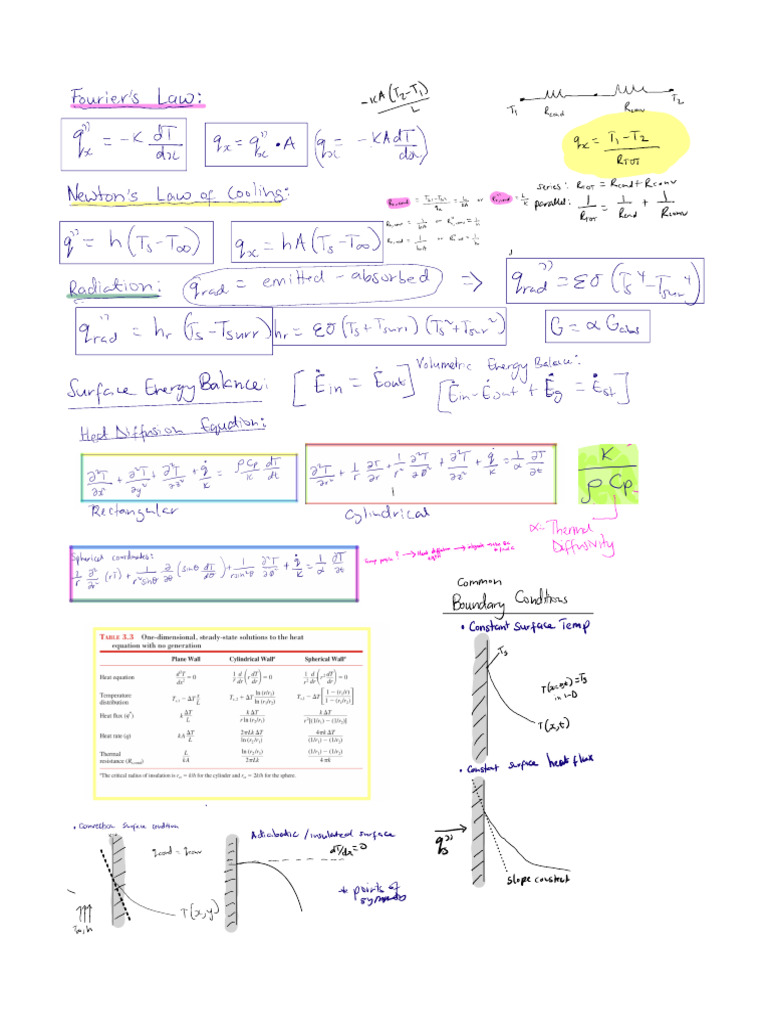 Fourier's Law:
-KA(T₂-T₁)/L
T₁ Rcond Rconv T₂
q''ₓ = -K dT/dx
qₓ = q''ₓ • A
(qₓ = -KAdT/dx)
qₓ = T₁-T₂/R_TOT
series: R_TOT = Rcond + Rconv
parallel: 1/R_TOT = 1/Rcond + 1/Rconv
Newton's Law of Cooling:
q'' = h(Ts-T∞)
qₓ = hA(Ts-T∞)
Radiation:
qrad = emitted - absorbed =>
q''rad = εσ(Ts⁴-Tsurr⁴)
q''rad = hr(Ts-Tsurr)
hr = εσ(Ts+Tsurr)(Ts²+Tsur²)
G = αGabs
Surface Energy Balance: [Ėin = Ėout]
Volumetric Energy Balance:
[Ėin-Ėout + Ėg = Ėst]
Heat Diffusion Equation:
∂²T/∂x² + ∂²T/∂y² + ∂²T/∂z² + q̇/K = ρCp/K dT/dt
∂²T/∂r² + 1/r ∂T/∂r + 1/r² ∂²T/∂θ² + ∂²T/∂z² + q̇/K = 1/α ∂T/∂t
K/ρCp
Rectangular
Cylindrical
α = Thermal
Diffusivity
Spherical coordinates:
1/r ∂²/∂r² (rT) + 1/r²sinθ ∂/∂θ (sinθ dT/dθ) + 1/rsin²θ ∂²T/∂θ² + q̇/K = 1/α ∂T/∂t
Common
Boundary Conditions
• Constant Surface Temp
Ts
in 1-D
T(x,t)
TABLE 3.3 One-dimensional, steady-state solutions to the heat
equation with no generation
Plane Wall Cylindrical Wallᵃ Spherical Wallᵃ
Heat equation d²T/dx² = 0 1/r d/dr (r dT/dr) = 0 1/r² d/dr (r² dT/dr) = 0
Temperature
distribution Ts,1 - ΔT x/L Ts,2 + ΔT ln (r/r₂)/ln (r₁/r₂) Ts,1 - ΔT [1 - (r₁/r)/1 - (r₁/r₂)]
Heat flux (q″) k ΔT/L k ΔT/r ln (r₂/r₁) k ΔT/r²[(1/r₁) - (1/r₂)]
Heat rate (q) kA ΔT/L 2πLk ΔT/ln (r₂/r₁) 4πk ΔT/(1/r₁) - (1/r₂)
Thermal
resistance (Rt,cond) L/kA ln (r₂/r₁)/2πLk (1/r₁) - (1/r₂)/4πk
ᵃThe critical radius of insulation is rcr = k/h for the cylinder and rcr = 2k/h for the sphere.
• Constant surface heat flux
q''s
slope constant
• Convection surface condition
qcond = qconv
T∞, h
T(x,y)
Adiabatic / insulated surface
dT/dx = 0
* points of
symmetry